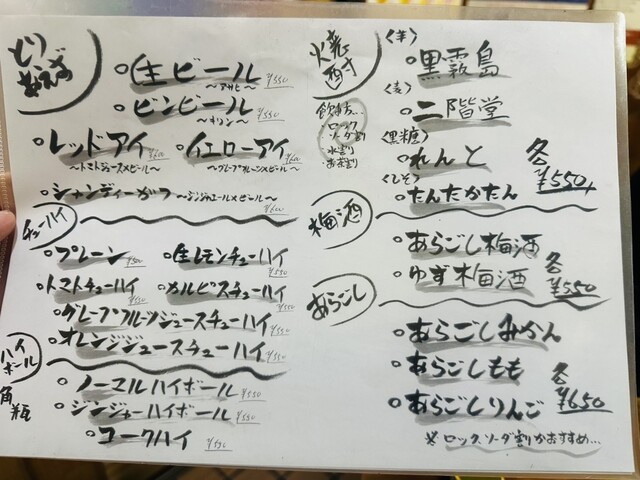 とりあえず
生ビール ¥550
～アサヒ～
ビンビール ¥550
～キリン～
レッドアイ ¥600
～トマトジュース×ビール～
イエローアイ ¥600
～グレープフルーツ×ビール～
シャンディーガフ ～ジンジャエール×ビール～ ¥600
チューハイ
プレーン ¥500
生レモンチューハイ ¥550
トマトチューハイ ¥550
カルピスチューハイ ¥550
グレープフルーツジュースチューハイ ¥550
オレンジジュースチューハイ ¥550
ハイボール
角瓶
ノーマルハイボール ¥550
ジンジャーハイボール ¥550
コークハイ ¥550
焼酎
飲み方…
ロック
ソーダ割り
水割り
お茶割り
〈芋〉
黒霧島
〈麦〉
二階堂
〈黒糖〉
れんと
〈しそ〉
たんたかたん
各¥550
梅酒
あらごし梅酒
ゆず梅酒
各¥550
あらごし
あらごしみかん
あらごしもも
あらごしりんご
各¥650
※ロック、ソーダ割がおすすめ…